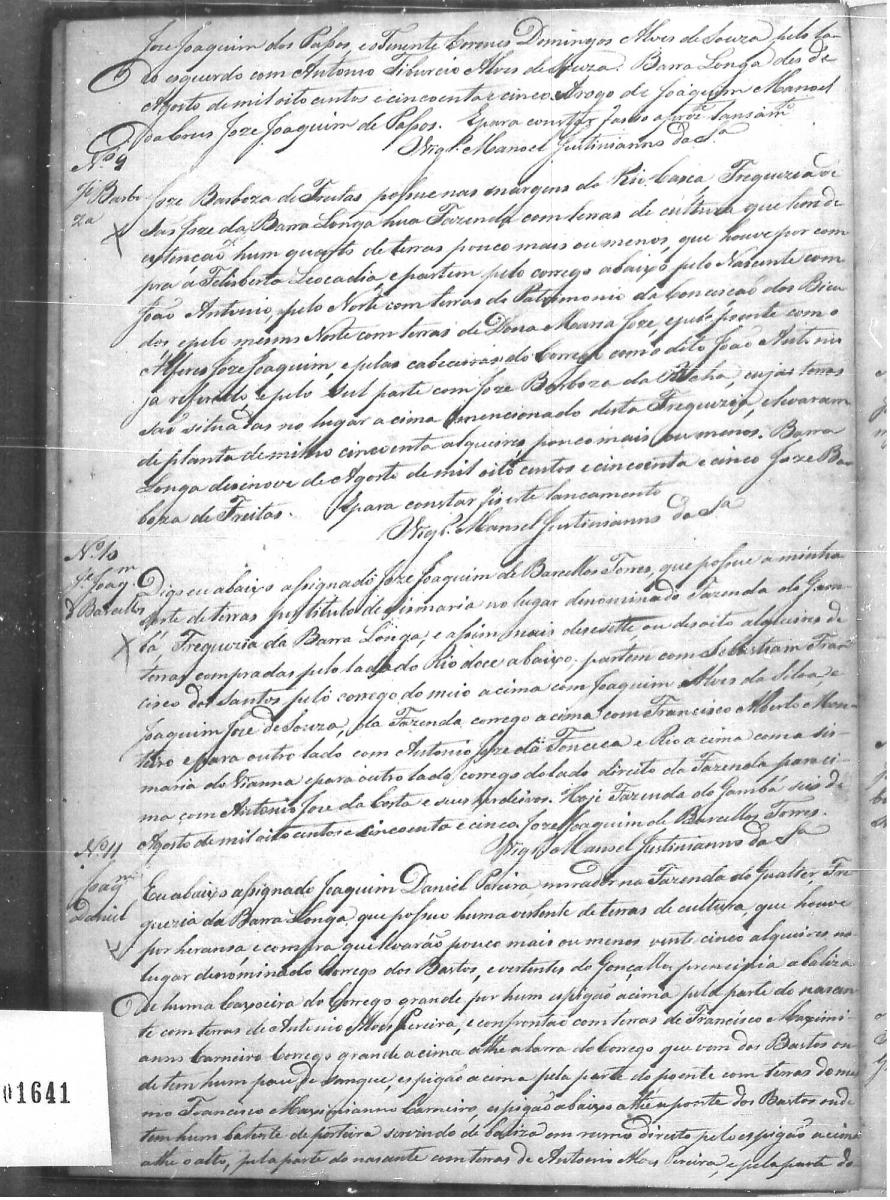 Joze Joaquim dos Passos, e o Tenente Coronel Domingos Alves de Souza pelo la-
do esquerdo com Antonio Tiburcio Alves de Souza. Barra Longa des de
Agosto de mil oito centos e cincoenta e cinco. Arogo de Joaquim Manoel
da Crus Joze Joaquim de Passos. Epara constar
Vigr.º Manoel Justinianno da Sª
Nº 9
Je Barbo-
za
Joze Barboza de Freitas possue nas margens do Rio Casca Freguezia de
Sao Joze da Barra Longa hua Fazenda com terras de cultura que tem de
extencaõ hum quarto de terras pouco mais ou menos, que houve por com-
pra á Feliberta Leocadia, e partem pelo corrego abaixo pelo Nascente com
João Antonio, pelo Norte com terras do Patrimonio da Conceicaõ dos Bicu-
dos e pelo mesmo Norte com terras de Dona Maria Joze, e pelo poente com o
Alferes Joze Joaquim, e pelas cabeceiras do Corrego com o dito João Antonio
já referido e pelo Sul parte com Joze Barboza da Rocha, cujas terras
saõ situadas no lugar a cima mencionado desta Freguezia, e levaram
de planta de milho cincoenta alqueires pouco mais ou menos. Barra
Longa desinove de Agosto de mil oito centos e cincoenta e cinco Joze Bar-
boza de Freitas. Epara constar fis este lancamento
Vigr.º Manoel Justinianno da Sª
Nº 10
Je Joaqm
d Barcellos
Digo eu abaixo assignado Joze Joaquim de Barcellos Torres, que possue a minha
sorte de terras por titulo de sismaria no lugar denominado Fazenda do Gam-
bá Freguezia da Barra Longa, e assim mais desesette, ou desoito alqueires de
terras compradas pelo lado do Rio doce abaixo, partem com Sebastiam Fran-
cisco dos Santos pelo corrego do meio a cima com Joaquim Alves da Silva, e
Joaquim Joze de Souza, da Fazenda corrego a cima com Francisco Alberto Mon-
teiro e para outro lado com Antonio Joze da Fonceca e Rio a cima com a sis-
maria do Vianna e para outro lado corrego do lado direito da Fazenda para ci-
ma com Antonio Joze da Costa e seus herdeiros. Hoje Fazenda do Gambá seis de
Agosto de mil oito centos e cincoenta e cinco. Joze Joaquim de Barcellos Torres.
Vigr.º Manoel Justinianno da Sª
Nº 11
Joaqm
Daniel
Eu abaixo assignado Joaquim Daniel Pereira, morador na Fazenda do Gualter, Fre-
guezia da Barra Longa, que possuo huma vertente de terras de cultura, que houve
por heransa e compra que levarão pouco mais ou menos vente cinco alqueires no
lugar denominado Corrego dos Bastos, e vertentes do Gonçalles, principia a baliza
De huma Caxoeira do Corrego grande por hum espigão a cima pela parte do nascen-
te com terras de Antonio Alves Pereira, e confrontão com terras de Francisco Maximi-
anno Carneiro Corrego grande a cima athe a barra do Corrego que vem dos Bastos on-
de tem hum pau de Sangue espigão a cima pela parte do poente com terras do mes-
mo Francisco Maximianno Carneiro, espigão abaixo athe a ponte dos Bastos onde
tem hum batente de porteira servindo de baliza em rumo direito pelo espigão a cima
athe o alto, pela parte do nascente com terras de Antonio Alves Pereira, e pela parte do
01641